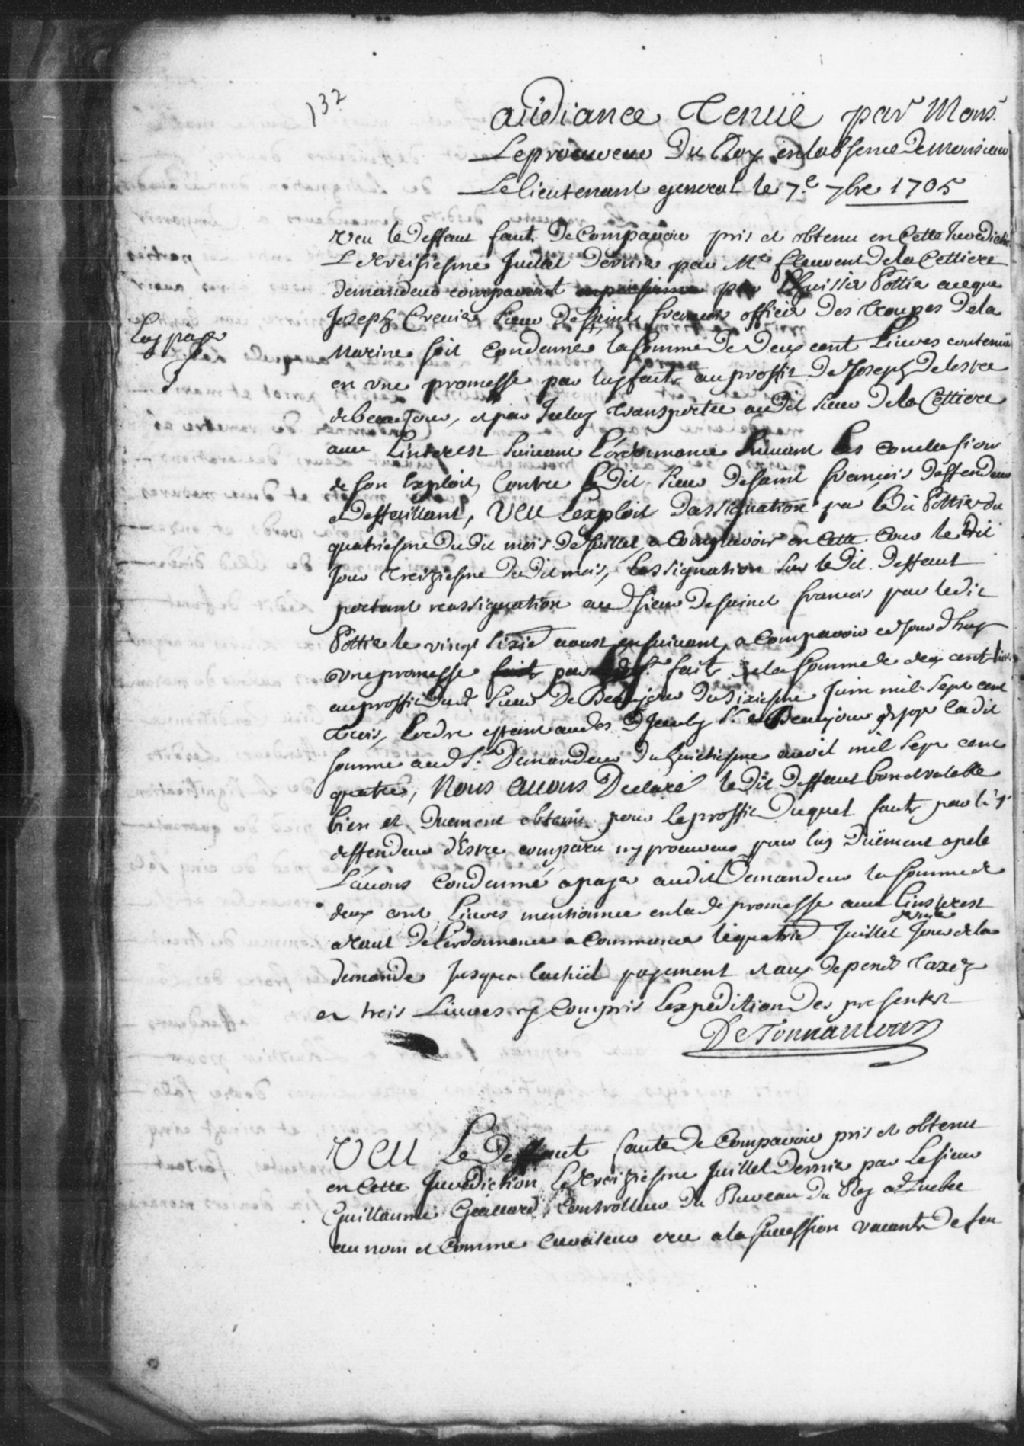 132
audiance Tenüe par Mons.r
Le procureur Du Roy en l'absence de monsieur
Le lieutenant general le 7.e 7bre 1705
Veu le deffaut faute De Comparoir pris et obtenu en Cette Juridiction
Le Treiziesme Juillet Dernier par M.re Clement de la Cettiere
demandeur comparant par L'huissier Pottier a ce que
Joseph Crevier Sieur de Saint francois officier des Troupes de la
Marine soit Condenné la somme de Deux cent Livres contenüe
en une promesse par luy faite au proffit De Joseph Delestre
de beaujour, et par Iceluy Transportée audit Sieur De la Cettiere
avec L'interest suivant L'ordonnance suivant les conclusions
de son Exploit, Contre le dit Sieur De saint francois deffendeur
et Deffaillant, Veu L'exploit D'assignation par le dit Pottier du
quatriesme du dit mois De Juillet a Comparoir en Cette Cour le dit
Jour Treiziesme du dit mois, L'assignation sur le dit deffaut
portant reassignation aud. Sieur De saint francois par le dit
Pottier le vingt aoust ensuivant, a Comparoir ce Jourd'huy
une promesse par fait de la somme de deux cent livres
au proffit dud. Sieur De Beaujour du Dixiesme Juin mil sept cent
Trois, L'ordre estant au dos D'Iceluy S.r Beaujour la dit
somme aud. S.r Demandeur Du huictiesme avril mil sept cent
quatre, Nous avons Declaré le dit deffaut bon et valable
bien et Duement obtenu pour le proffit Duquel faute par le d.
deffendeur d'Estre comparu ny procureur pour luy Duëment apelé
L'avons condenné a payer audit Demandeur la somme de
deux cent Livres mentionnée en la d. promesse avec L'interest
a Taux De L'ordonnance a Commencer le quatre Juillet Jour de la
demande Jusqu'a L'actüel payement et aux depens Taxez
a trois Livres y Compris L'expedition des presentes
De Tonnancour
Veu Le Deffaut faute de Comparoir pris et obtenu
en Cette Jurediction Le Treiziesme Juillet Dernier par Le sieur
Guillaume Gaillard Controlleur du Bureau du Roy a Quebec
au nom et comme Curateur créé a la succession vacante de feu